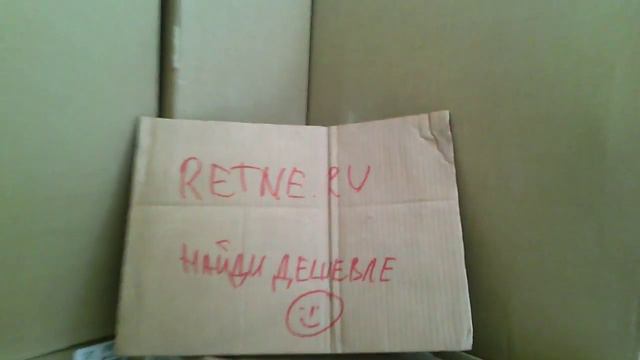 RETNE.RU
НАЙДИ ДЕШЕВЛЕ